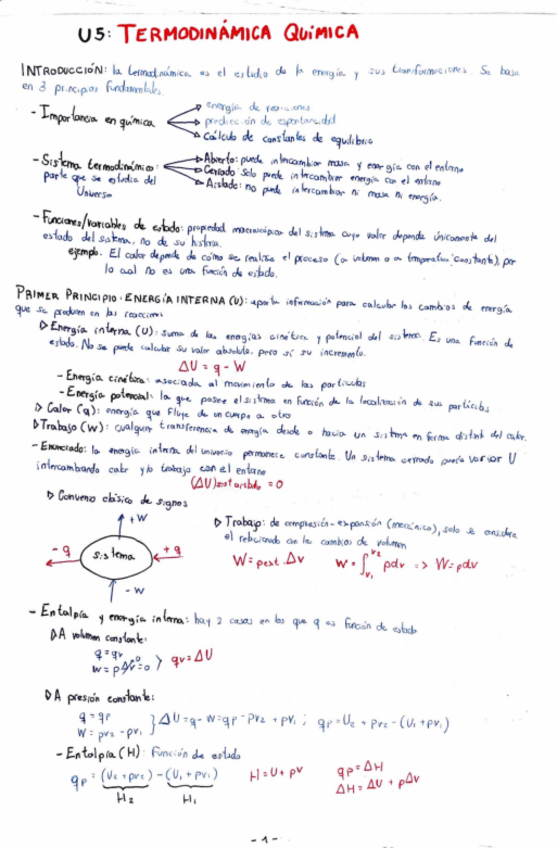 U5: TERMODINÁMICA QUÍMICA
INTRODUCCIÓN: la termodinámica es el estudio de la energía y sus transformaciones. Se basa
en 3 principios fundamentales.
- Importancia en química
energía de reacciones
predicción de espontaneidad
cálculo de constantes de equilibrio
- Sistema termodinámico:
parte que se estudia del
Universo
Abierto: puede intercambiar masa y energía con el entorno
Cerrado: Solo puede intercambiar energía con el entorno
Aislado: no puede intercambiar ni masa ni energía.
- Funciones/variables de estado: propiedad macroscópica del sistema cuyo valor depende únicamente del
estado del sistema, no de su historia.
ejemplo. El calor depende de cómo se realice el proceso (a volumen o a temperatura constante), por
lo cual no es una función de estado.
PRIMER PRINCIPIO. ENERGÍA INTERNA (U): aporta información para calcular los cambios de energía
que se producen en las reacciones
▷ Energía interna (U): suma de las energías cinética y potencial del sistema. Es una función de
estado. No se puede calcular su valor absoluto, pero sí su incremento.
ΔU = q - W
- Energía cinética: asociada al movimiento de las partículas
- Energía potencial: la que posee el sistema en función de la localización de sus partículas
▷ Calor (q): energía que fluye de un cuerpo a otro
▷ Trabajo (W): cualquier transferencia de energía desde o hacia un sistema en forma distinta del calor.
- Enunciado: la energía interna del universo permanece constante. Un sistema cerrado puede variar U
intercambiando calor y/o trabajo con el entorno
(ΔU) = 0
▷ Convenio clásico de signos
+W
- q
sistema
+ q
- W
▷ Trabajo: de compresión-expansión (mecánico), solo se considera
el relacionado con los cambios de volumen
W = pext. ΔV W = ∫ V1 V2 pdv => W = pdv
- Entalpía y energía interna: hay 2 casos en los que q es función de estado
▷ A volumen constante:
q = qv
W = pΔV = 0
qv = ΔU
▷ A presión constante:
q = qp
W = pv2 - pv1
} ΔU = q - W = qp - pv2 + pv1 ; qp = U2 + pv2 - (U1 + pv1)
- Entalpía (H): Función de estado
qp = (U2 + pv2) - (U1 + pv1) H = U + pV qp = ΔH
H2 H1 ΔH = ΔU + pΔV
- 1 -